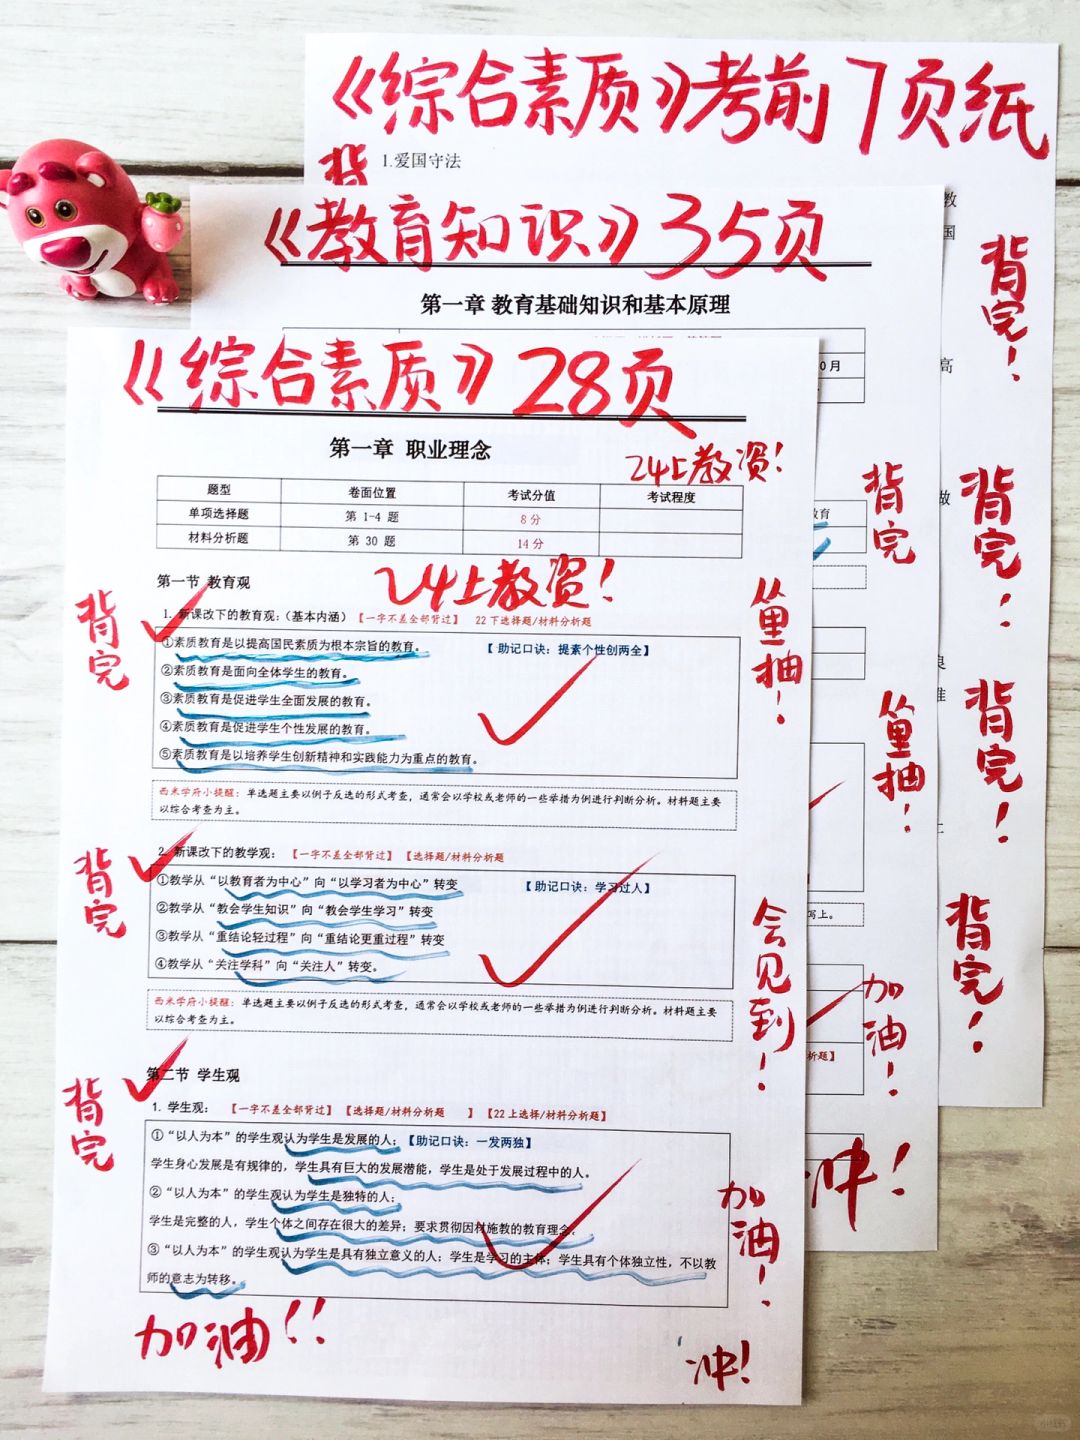 《综合素质》考前7页纸
背
1.爱国守法
教
国
背完!
《教育知识》35页
第一章 教育基础知识和基本原理
0月
高
《综合素质》28页
第一章 职业理念
24上教资!
题型 卷面位置 考试分值 考试程度
单项选择题 第 1-4 题 8分
材料分析题 第 30 题 14分
背完
背完!
做
教育
24上教资!
第一节 教育观
1. 新课改下的教育观:(基本内涵)【一字不差全部背过】 22下选择题/材料分析题
背完
①素质教育是以提高国民素质为根本宗旨的教育。 【助记口诀:提素个性创两全】
②素质教育是面向全体学生的教育。
③素质教育是促进学生全面发展的教育。
④素质教育是促进学生个性发展的教育。
⑤素质教育是以培养学生创新精神和实践能力为重点的教育。
背完!
西米学府小提醒:单选题主要以例子反选的形式考查,通常会以学校或老师的一些举措为例进行判断分析。材料题主要
以综合考查为主。
2. 新课改下的教学观: 【一字不差全部背过】【选择题/材料分析题
背完
①教学从“以教育者为中心”向“以学习者为中心”转变 【助记口诀:学习过人】
②教学从“教会学生知识”向“教会学生学习”转变
③教学从“重结论轻过程”向“重结论更重过程”转变
④教学从“关注学科”向“关注人”转变。
会见到!
写上。
背完!
加油!
西米学府小提醒:单选题主要以例子反选的形式考查,通常会以学校或老师的一些举措为例进行判断分析。材料题主要
以综合考查为主。
析题】
第二节 学生观
背完
1. 学生观: 【一字不差全部背过】【选择题/材料分析题 】【22上选择/材料分析题】
①“以人为本”的学生观认为学生是发展的人;【助记口诀:一发两独】
学生身心发展是有规律的,学生具有巨大的发展潜能,学生是处于发展过程中的人。
②“以人为本”的学生观认为学生是独特的人;
学生是完整的人,学生个体之间存在很大的差异;要求贯彻因材施教的教育理念。
③“以人为本”的学生观认为学生是具有独立意义的人;学生是学习的主体;学生具有个体独立性,不以教
师的意志为转移。
冲!
加油!
加油!!
冲!